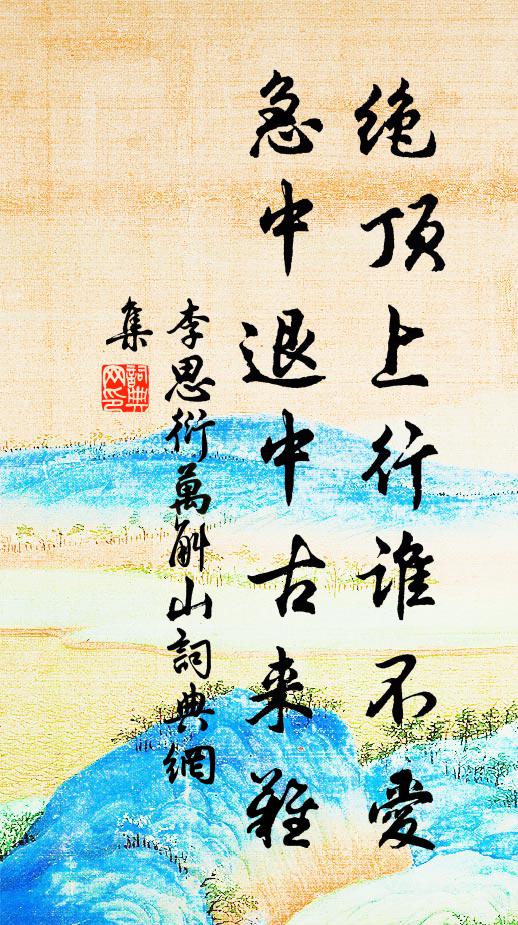 绝顶上行谁不爱
急中退中古来難
李思衍萬斛山詞典網
集
詞典
网印